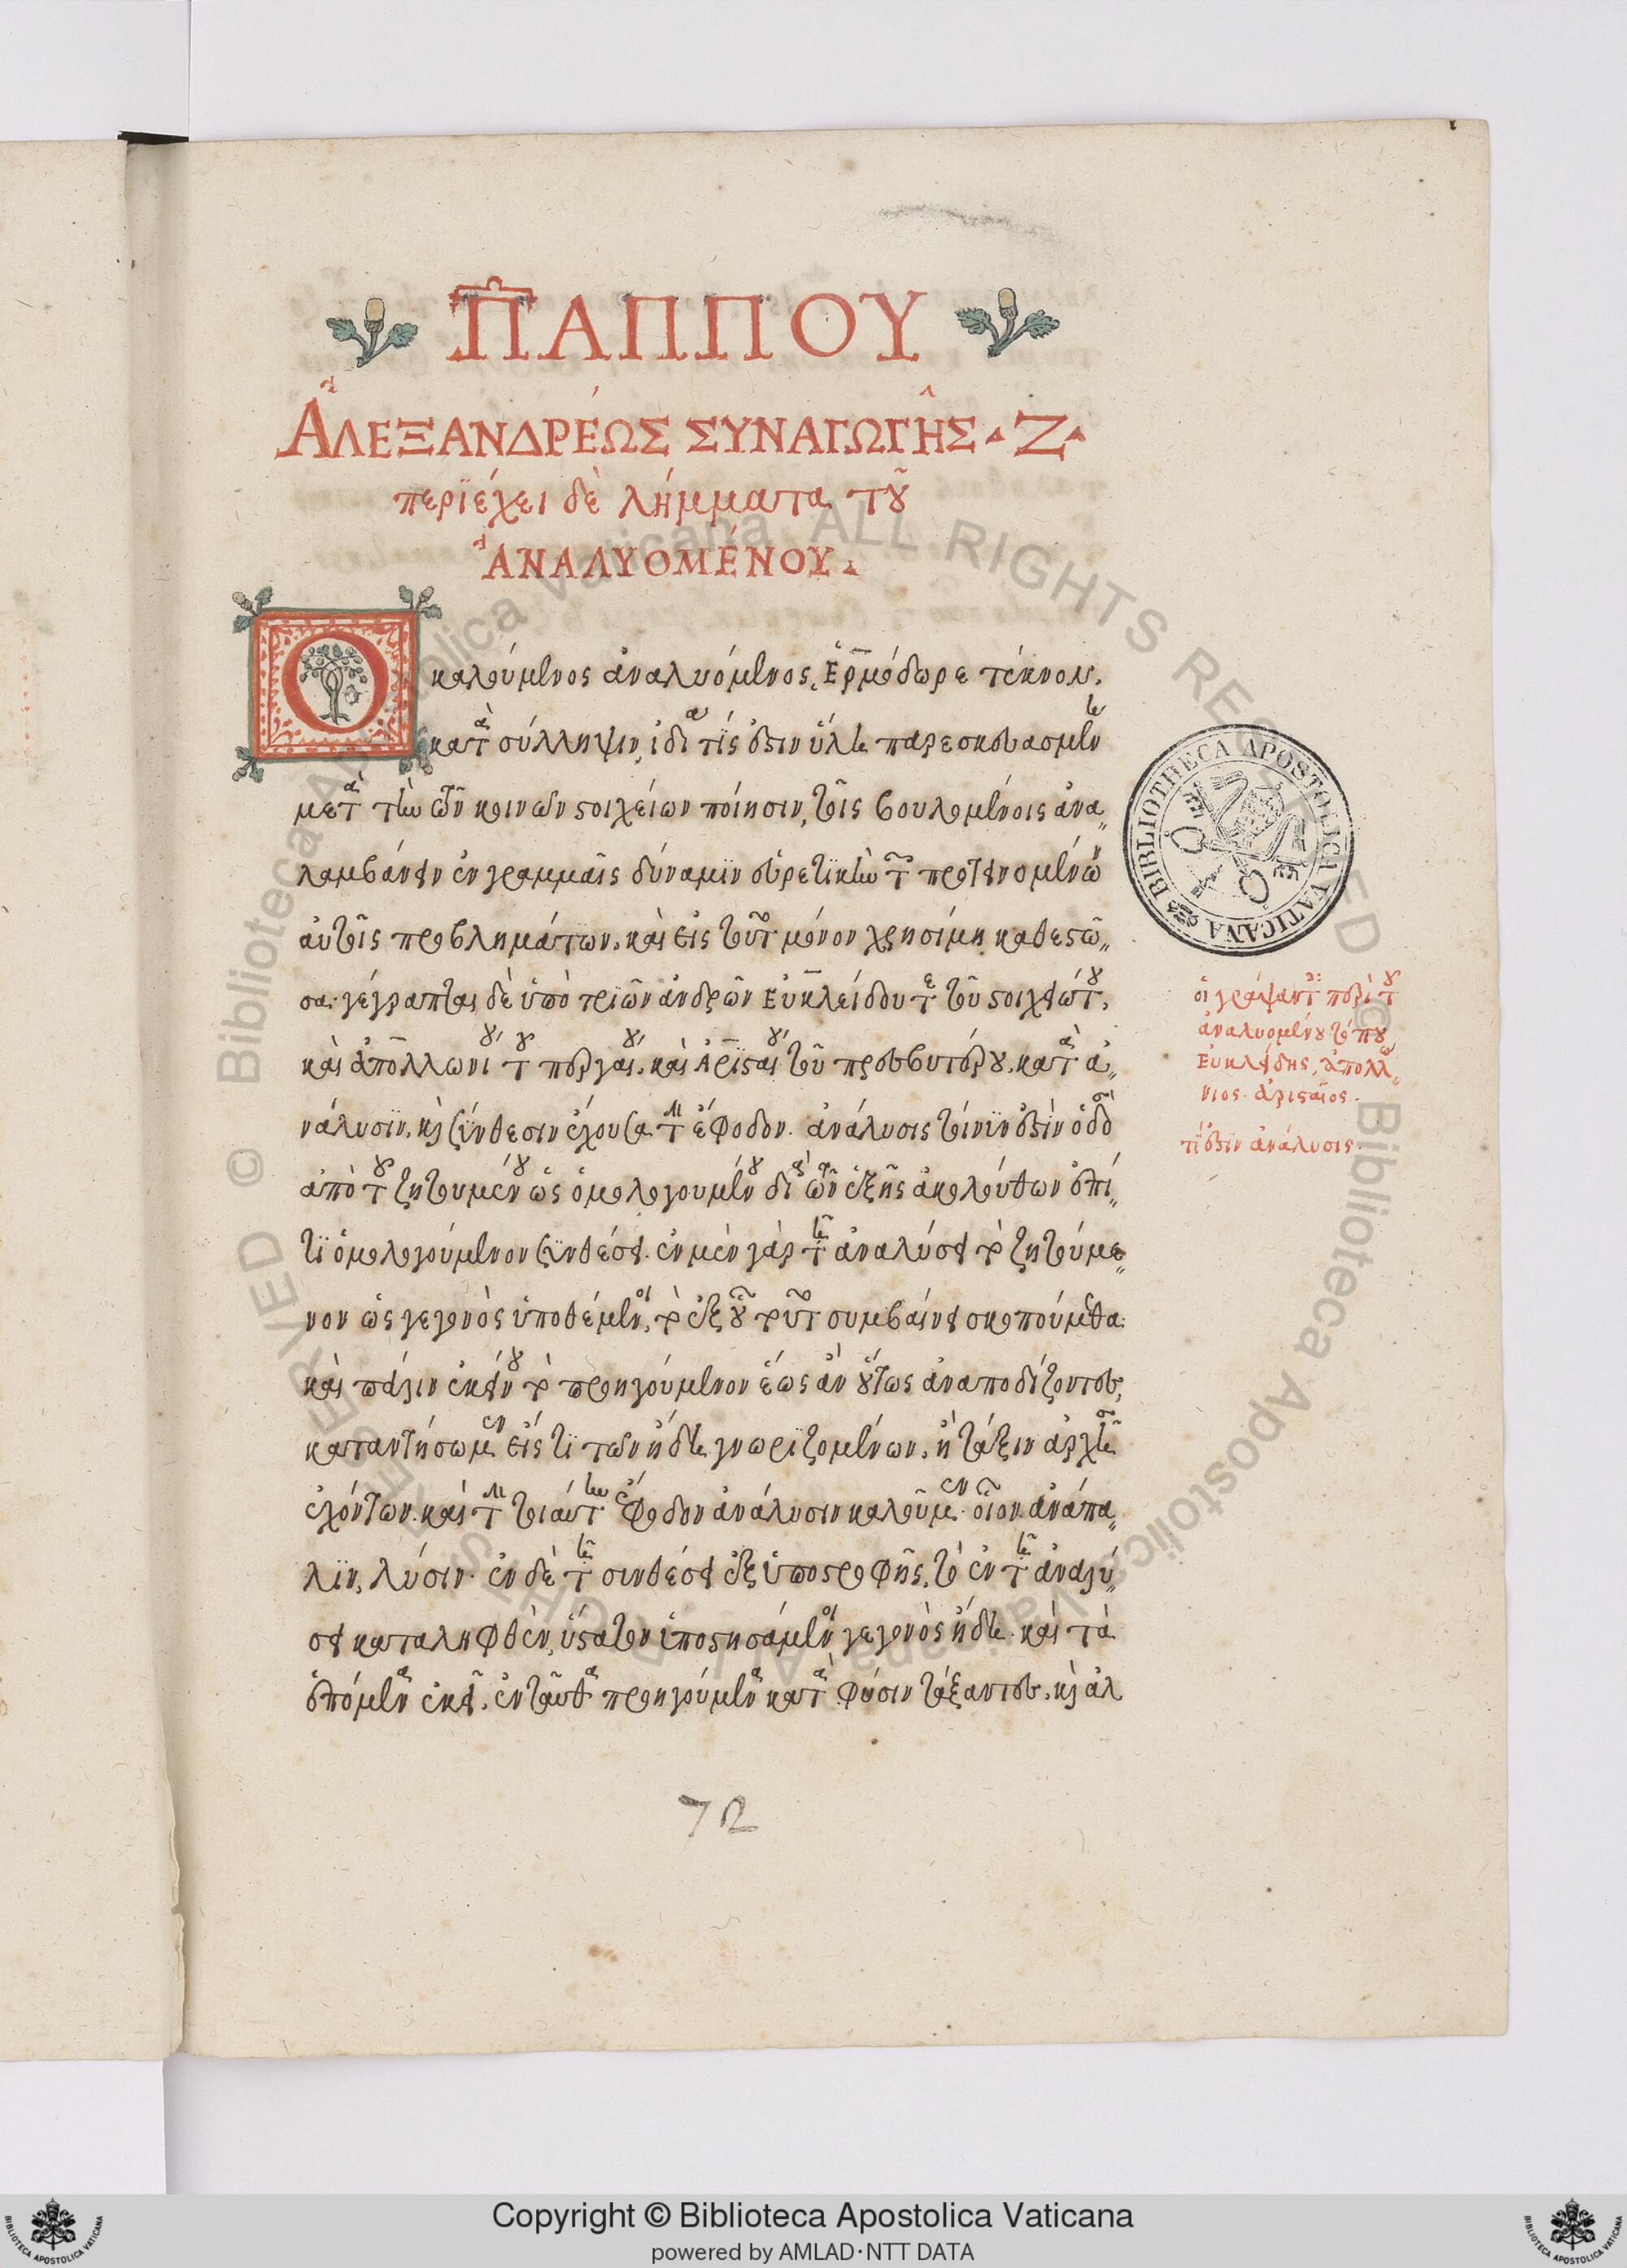 ΠΑΠΠΟΥ
ἈΛΕΞΑΝΔΡΈΩΣ ΣΥΝΑΓΩΓῆΣ · Ζ ·
περϊέχει δὲ λήμματα τοῦ
ἈΝΑΛΥΟΜΈΝΟΥ.
Ὁ καλούμενος ἀναλυόμενος, Ἑρμόδωρε τέκνον,
κατὰ σύλληψιν, ἰδία τίς ἐστιν ὕλη παρεσκευασμένη
μετὰ τὴν τῶν κοινῶν στοιχείων ποίησιν, τοῖς βουλομένοις ἀνα„
λαμβάνειν ἐν γραμμαῖς δύναμϊν εὑρετϊκὴν τῶν προτεινομένων
αὐτοῖς προβλημάτων. καὶ εἰς τοῦτο μόνον χρησίμη καθεστῶ„
σα. γέγραπται δὲ ὑπὸ τριῶν ἀνδρῶν Εὐκλείδου τε τοῦ στοιχειωτοῦ,
καὶ ἀπολλωνίου τοῦ περγαίου, καὶ Ἀρϊσταίου τοῦ πρεσβυτέρου. κατὰ ἀ„
νάλυσϊν, καὶ σύνθεσιν ἔχουσα τὴν ἔφοδον. ἀνάλυσις τοίνϊν ἐστὶν ὁδὸς
ἀπὸ τοῦ ζητουμένου ὡς ὁμολογουμένου διὰ τῶν ἑξῆς ἀκολούθων ἐπί„
τϊ ὁμολογούμενον συνθέσει. ἐν μὲν γὰρ τῇ ἀναλύσει τὸ ζητούμε„
νον ὡς γεγονὸς ὑποθέμενοι, τὸ ἐξ οὗ τοῦτο συμβαίνει σκοπούμεθα.
καὶ πάλιν ἐκείνου τὸ προηγούμενον ἕως ἂν οὕτως ἀναποδίζοντες,
καταντήσωμεν εἴς τϊ τῶν ἤδη γνωρϊζομένων, ἢ τάξιν ἀρχῆς
ἐχόντων. καὶ τὴν τοιαύτην ἔφοδον ἀνάλυσιν καλοῦμεν. οἷον ἀνάπα„
λϊν, λύσιν. ἐν δὲ τῇ συνθέσει ἐξ ὑποστροφῆς, τὸ ἐν τῇ ἀναλύ„
σει καταληφθὲν, ὕστατον ὑποστησάμενοι γεγονὸς ἤδη. καὶ τὰ
ἑπόμενα ἐκεῖ, ἐνταῦθα προηγούμενα κατὰ φύσιν τάξαντες, καὶ ἀλ
οἱ γράψαντες περὶ τοῦ
ἀναλυομένου τόπου
Εὐκλείδης, ἀπολλώ„
νιος. ἀρισταῖος.
τί ἐστϊν ἀνάλυσις.
BIBLIOTHECA APOSTOLICA VATICANA
72
© Biblioteca Apostolica Vaticana ALL RIGHTS RESERVED
Copyright © Biblioteca Apostolica Vaticana
powered by AMLAD·NTT DATA
BIBLIOTECA APOSTOLICA VATICANA
BIBLIOTECA APOSTOLICA VATICANA